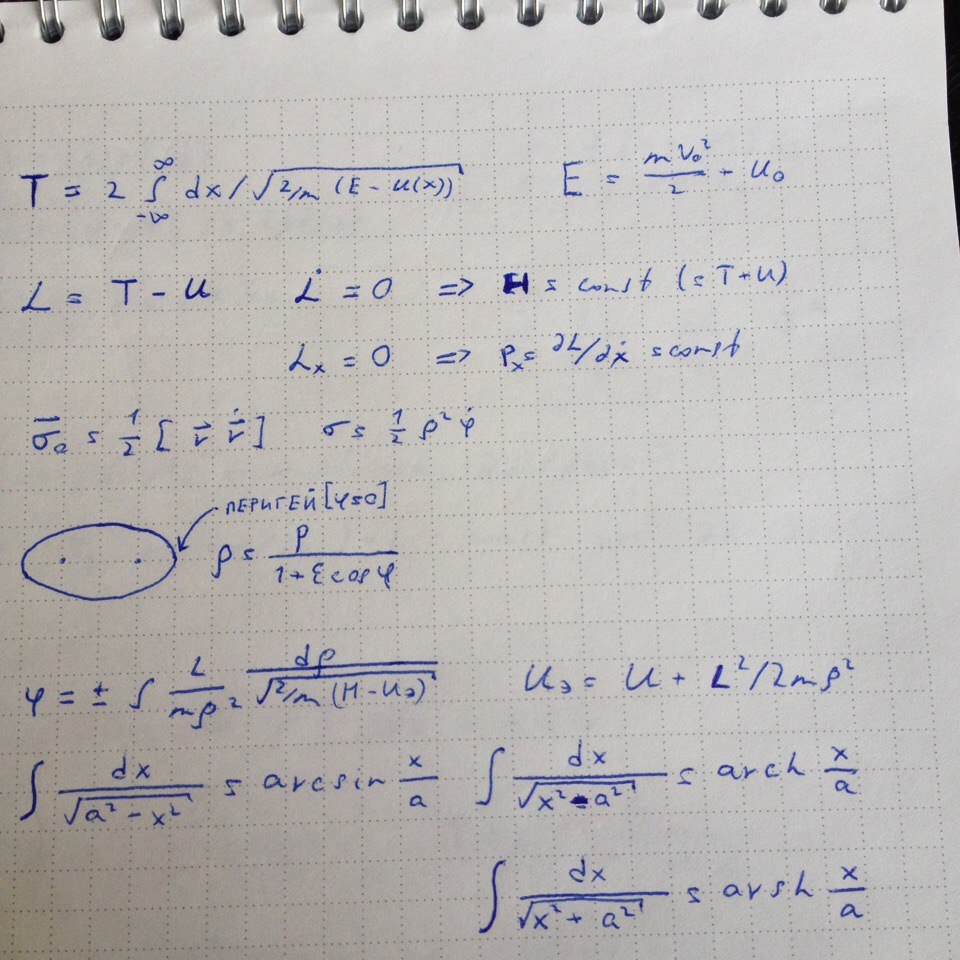 T = 2 ∫_{-∞}^{∞} dx / √(2/m (E - U(x))) E = mV₀²/2 + U₀
L = T - U L̇ = 0 => H = const (= T + U)
Lₓ = 0 => Pₓ = ∂L/∂ẋ = const
σ⃗₀ = 1/2 [r⃗ r⃗̇] σ = 1/2 ρ² φ̇
ПЕРИГЕЙ [φ=0]
ρ = p / (1 + ε cos φ)
φ = ± ∫ L/(mρ²) dρ/√(2/m (H - Uэ)) Uэ = U + L²/2mρ²
∫ dx/√(a² - x²) = arcsin x/a ∫ dx/√(x² - a²) = arch x/a
∫ dx/√(x² + a²) = arsh x/a